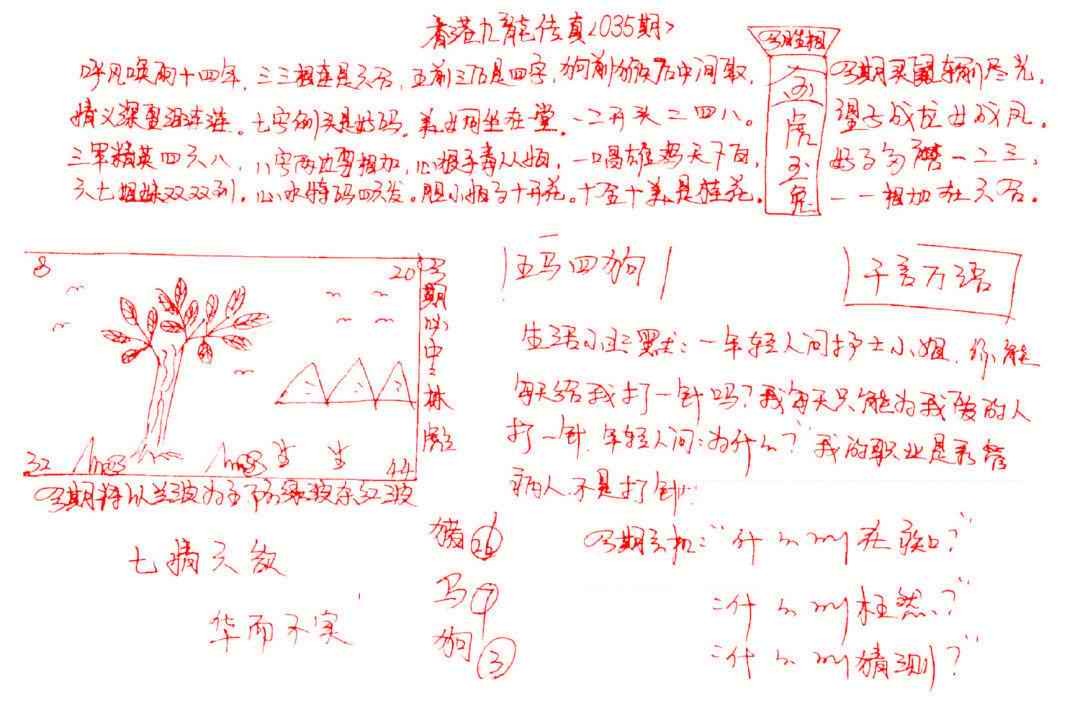 香港九龍传真<035期>
呼风唤雨十四年，三三相连是六合，五前三后是四字，狗前猴后中间取，
情义深重泪连莲。七字例头是好码。美女网坐在堂，一二开头二四八。
三军精英四六八，八字两边要相加，心狠手毒从娘，一唱雄鸡天下白，
六七姐妹双双到，心水特码四方发。胆小怕事十开花。十全十美是桂花。
今期买鼠输尽光，
望子成龙女成凤，
好子勾腾一二三，
一一相加在六合。
8
20
32
44
今期必中一株
今期将以兰波为主防绿波在红波
五马四狗
千言万语
生活小幽默：一年轻人问护士小姐，你能
每天给我打一针吗？我每天只能为我爱的人
打一针，年轻人问：为什么？我的职业是看管
病人，不是打针
七情六欲
华而不实
猪 26
马 7
狗 3
今期玄机：“什么叫在疾？”
：什么叫枉然？”
：什么叫猜测？”